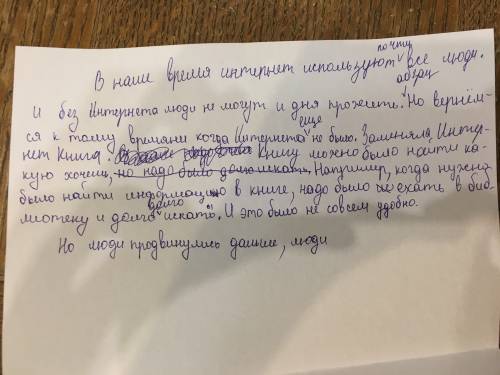 В наше время интернет используют почти все люди.
И без Интернета люди не могут и дня прожить. абзац Но вернём-
ся к тому времени когда Интернета ещё не было. Заменяла Интер-
нет Книга. Книгу можно было найти ка-
кую хочешь, но надо было долго искать. Например, когда нужно
было найти информацию в книге, надо было ехать в биб-
лиотеку и долго долго искать. И это было не совсем удобно.
Но люди продвинулись дальше, люди